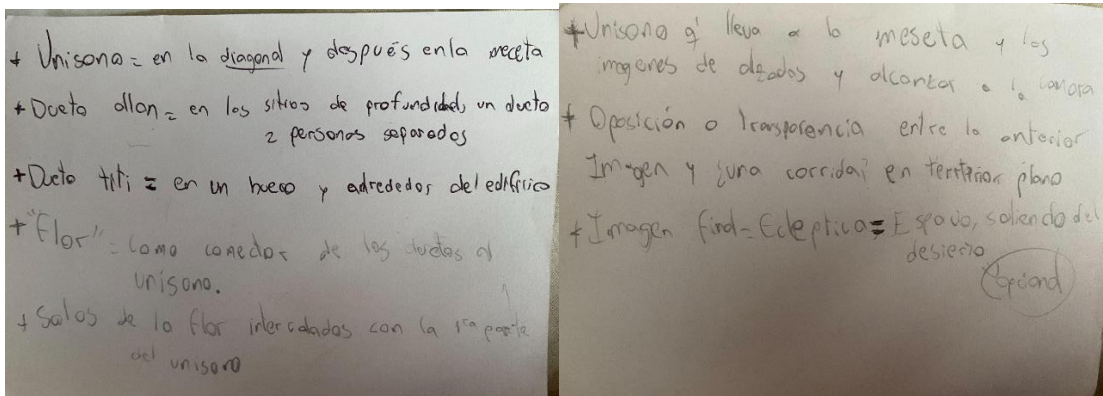 + Unisono = en la diagonal y después en la meceta
+ Dueto allan = en los sitios de profundidad, un dueto
2 personas separados
+ Dueto titi = en un hueco y adrededor del edificio
+ "Flor" = como de los duetos al
unisono.
+ Salos de la flor intercalados con la 1ra parte
del unisono
+ Unisono q' lleva a la meseta y las
imagenes de alzados y alcanzar a la camara
+ Oposición o Transparencia entre la anterior
Imagen y ¿una corrida? en plano
+ Imagen final = Ecleptica = Espacio, saliendo del
desierto
Opcional